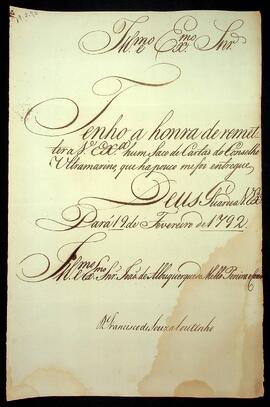 Ill.mo Ex.mo Snr.
Tenho a honra de remet
ter a V.Ex.a hum Saco de Cartas do Conselho
Ultramarino, que ha pouco me foi entregue.
Deus Guarde a V.Ex.a
Pará 19 de Fevereiro de 1792.
Ill.mo e Ex.mo Snr. João de Albuquerque de Mello Pereira e
D. Francisco de Souza Coutinho